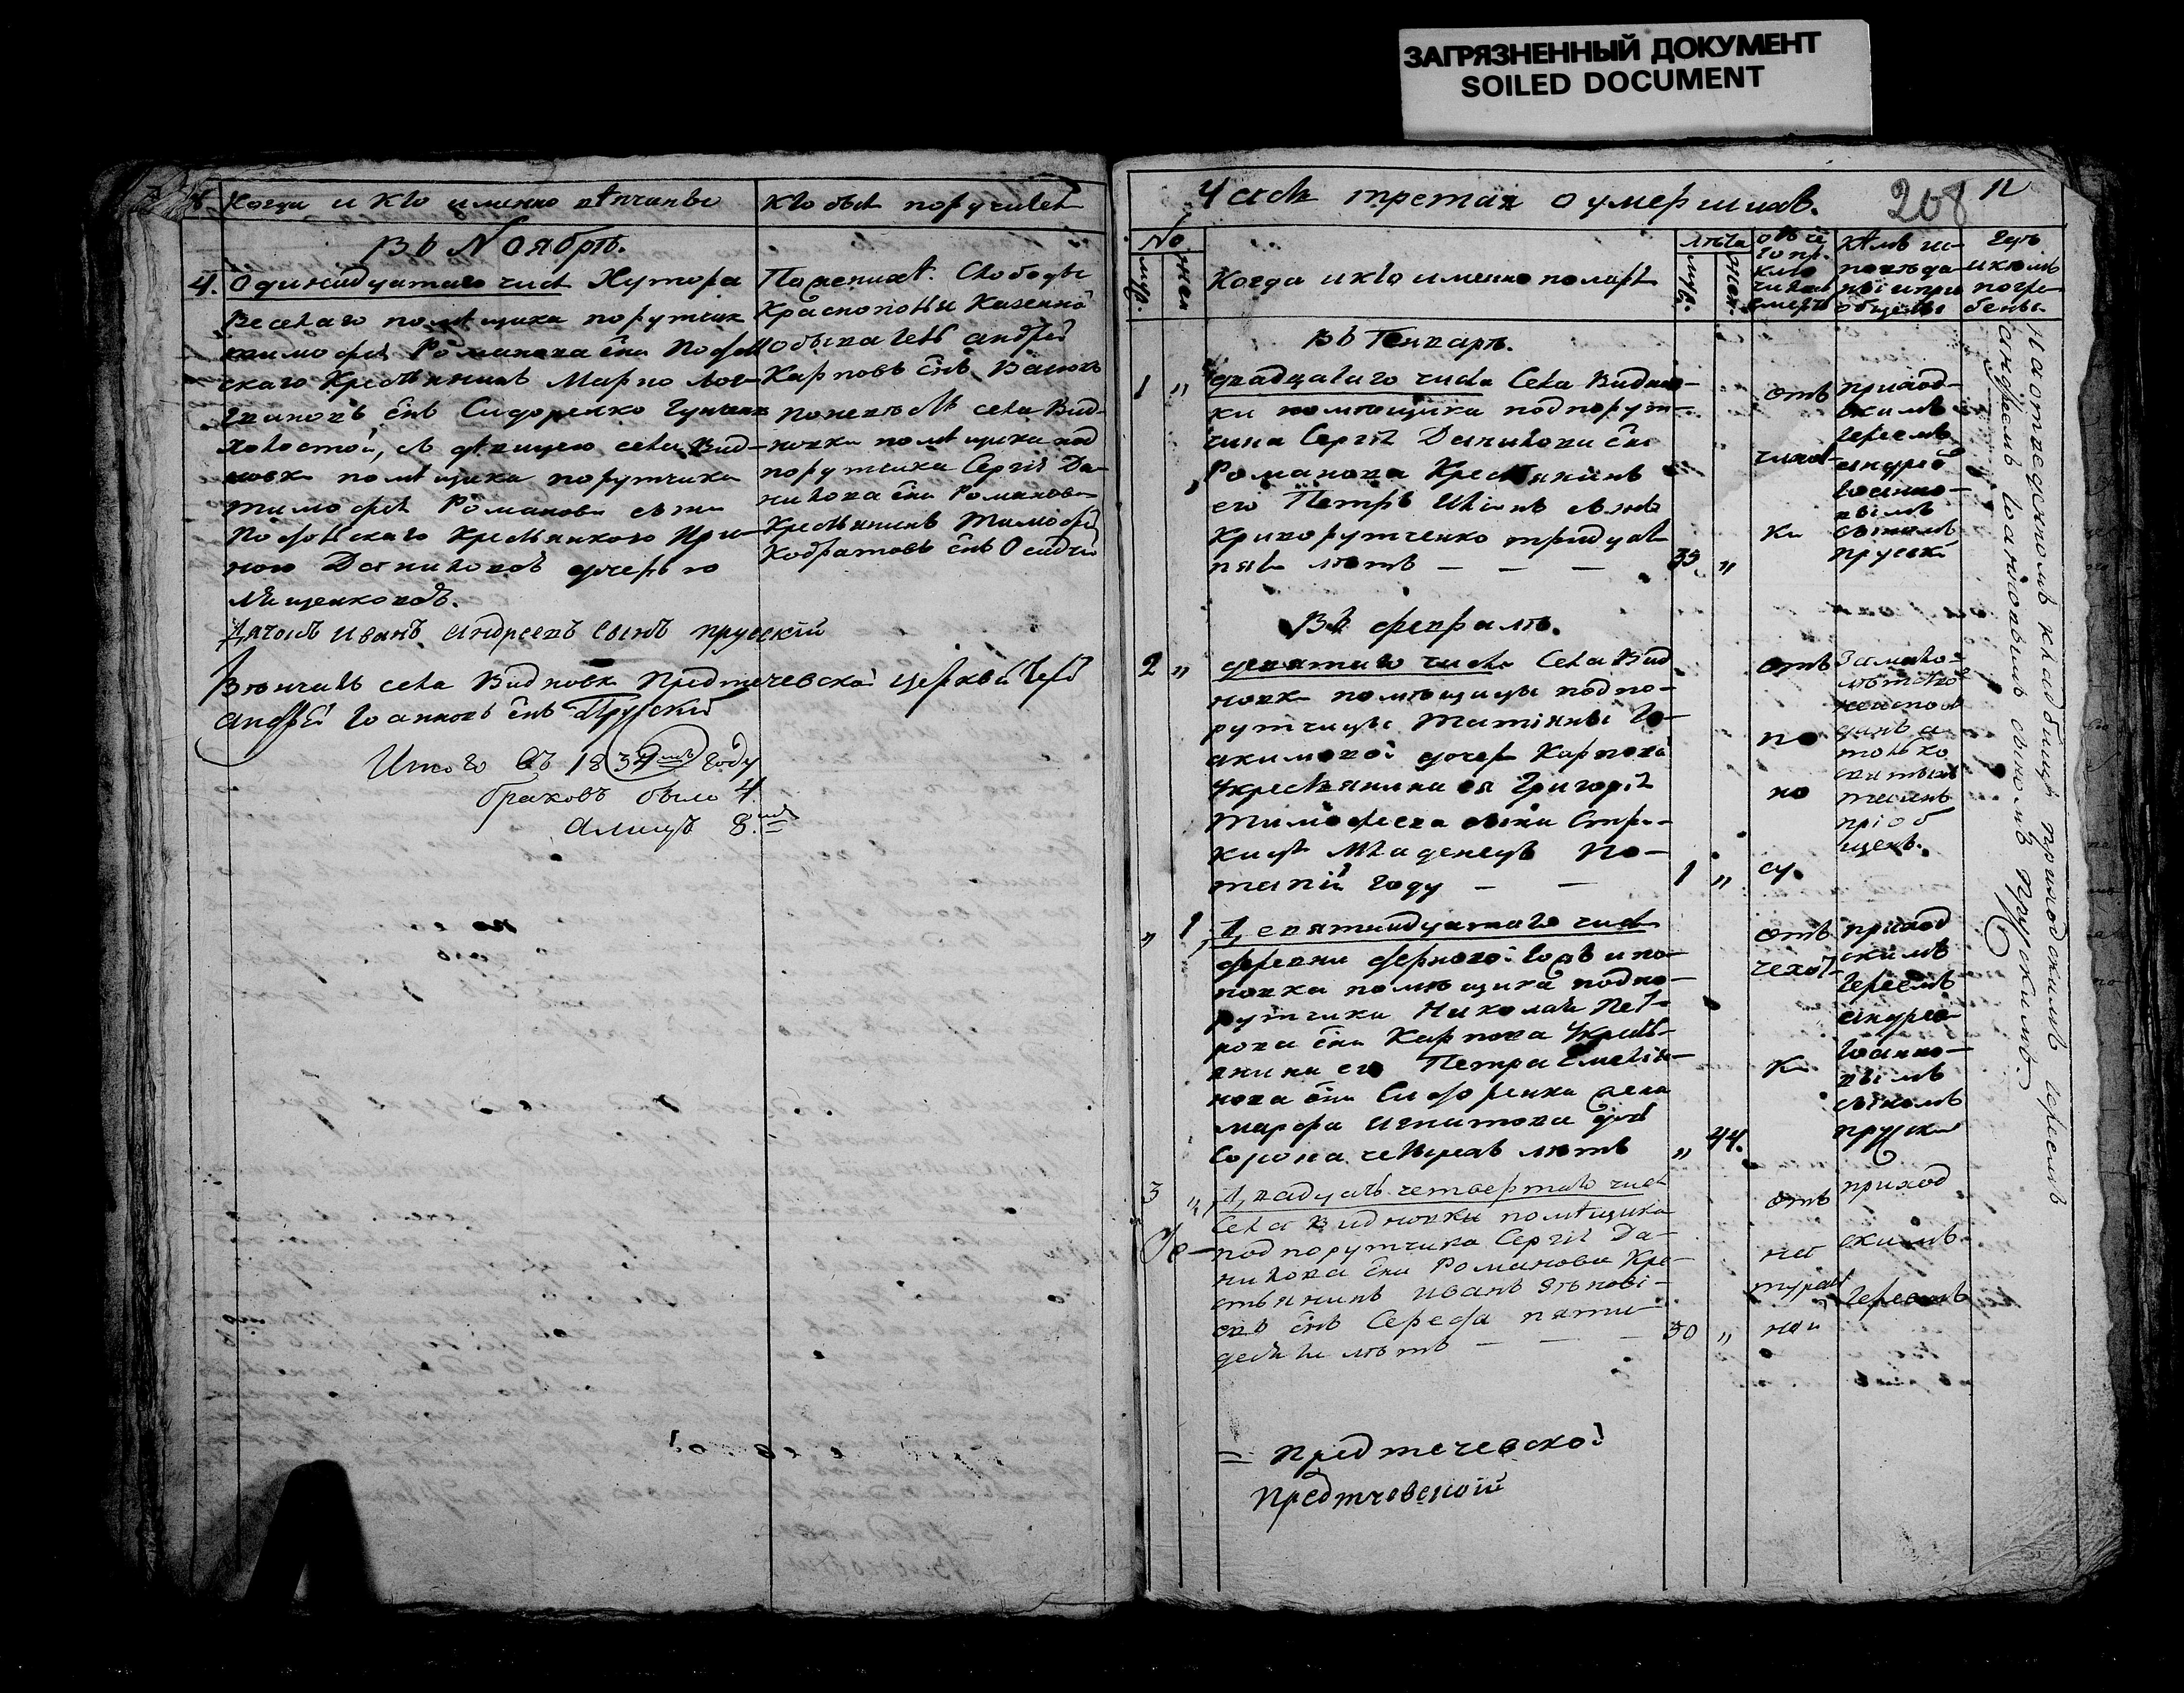 ЗАГРЯЗНЕННЫЙ ДОКУМЕНТ
SOILED DOCUMENT
Когда и кто именно вѣнчаны
Кто былъ поручител
Въ Ноябрѣ.
4. Одинадцатаго числ Хутора
Веселаго помѣщика поручик
Тимофея Романова сна
скаго Крестьянинъ Марко
снъ Сидоренко
холостой, съ дѣвицею села Вид-
новки помѣщика поручика
Тимофея Романова сына
крестьянкою Ири-
ною Даниловой дочерью
По женихѣ: Слободы
Краснополки Казенной
обыватель андрей
Карповъ снъ
по невѣстѣ села Вид-
новки помѣщика под
порутчика Сергія Да-
нилова сна Романова
Крестьянинъ Тимофей
Кодратовъ снъ Осадчій
Дячокъ Иванъ Андреевъ сынъ прускій
Вѣнчалъ села Видновки Предтечевской церкви Іерей
Андрей Іоанновъ снъ Прускій
Итого въ 1834мъ году
браковъ было 4.
а лицъ 8.
Часть третая о умершихъ.
208
12
No
муж.
жен
Когда и кто именно померъ
лѣта
муж.
жен.
отъ че
го при-
ключи
лась
смерть
Кѣмъ ис-
повѣда-
ны и при
общены
Гдѣ
и кѣмъ
погре-
бены
Въ Генварѣ.
1 "
двадцатаго числа Села Виднов-
ки помѣщика подпорут-
чика Сергія Данилова сна
Романова Крестьянинъ
его Петръ Ильинъ сынъ
Криворутченко тридцать
пять лѣтъ — — —
35 "
отъ
чихот-
ки
приход-
скимъ
Іереемъ
андрей
Іоанно-
вымъ
сыномъ
пруски
Въ февралѣ.
2 "
девятаго числа Села Вид
новки помѣщицы подпо-
рутчицы Татіаны Іо-
акимовой дочер Карповой
Крестьянина ея Григорія
Тимофеева сына
младенецъ По-
тапій году — —
1 "
отъ
по
но
су.
За мало-
лѣтство
неиспов
данъ а
только
святыхъ
таинъ
пріоб
щенъ.
" 1
Девятнадцатаго числ
деревни
помѣщика подпо-
рутчика Николая Пет-
рова сна Карпова Крест-
янина его Петра Емелья-
нова сна Сидоренка жена
марфа игнатова доч
Сорока четырехъ лѣтъ
" 44.
отъ
чехот-
ки
приход
скимъ
Іереемъ
андрее
Іоанно-
вымъ
сыномъ
пруски
3 "
Двадцать четвертаго числ
Села Видновки помѣщика
подпорутчика Сергія Да-
нилова сна Романова Кре-
стьянинъ иванъ
снъ Середа пяти
десяти лѣтъ — — —
50 "
отъ
на
турал
ной
приход
скимъ
Іереемъ
На отведенномъ кладбищѣ приходскимъ Іереемъ
андреемъ Іоанновымъ сыномъ Прускимъ.
= Предтечевской
Предтчевской